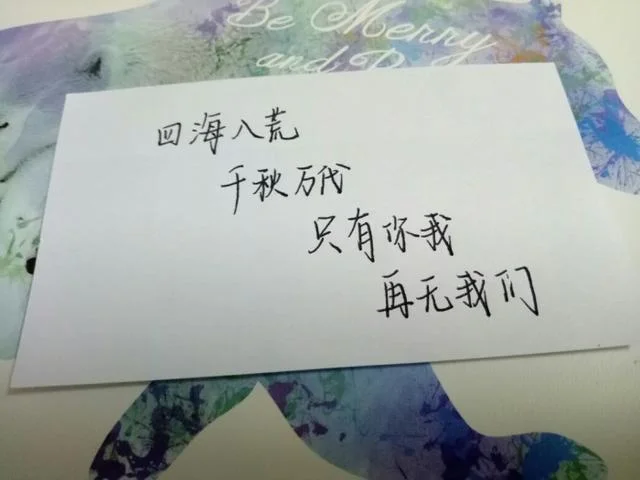 Be Merry
and
四海八荒
千秋万代
只有你我
再无我们